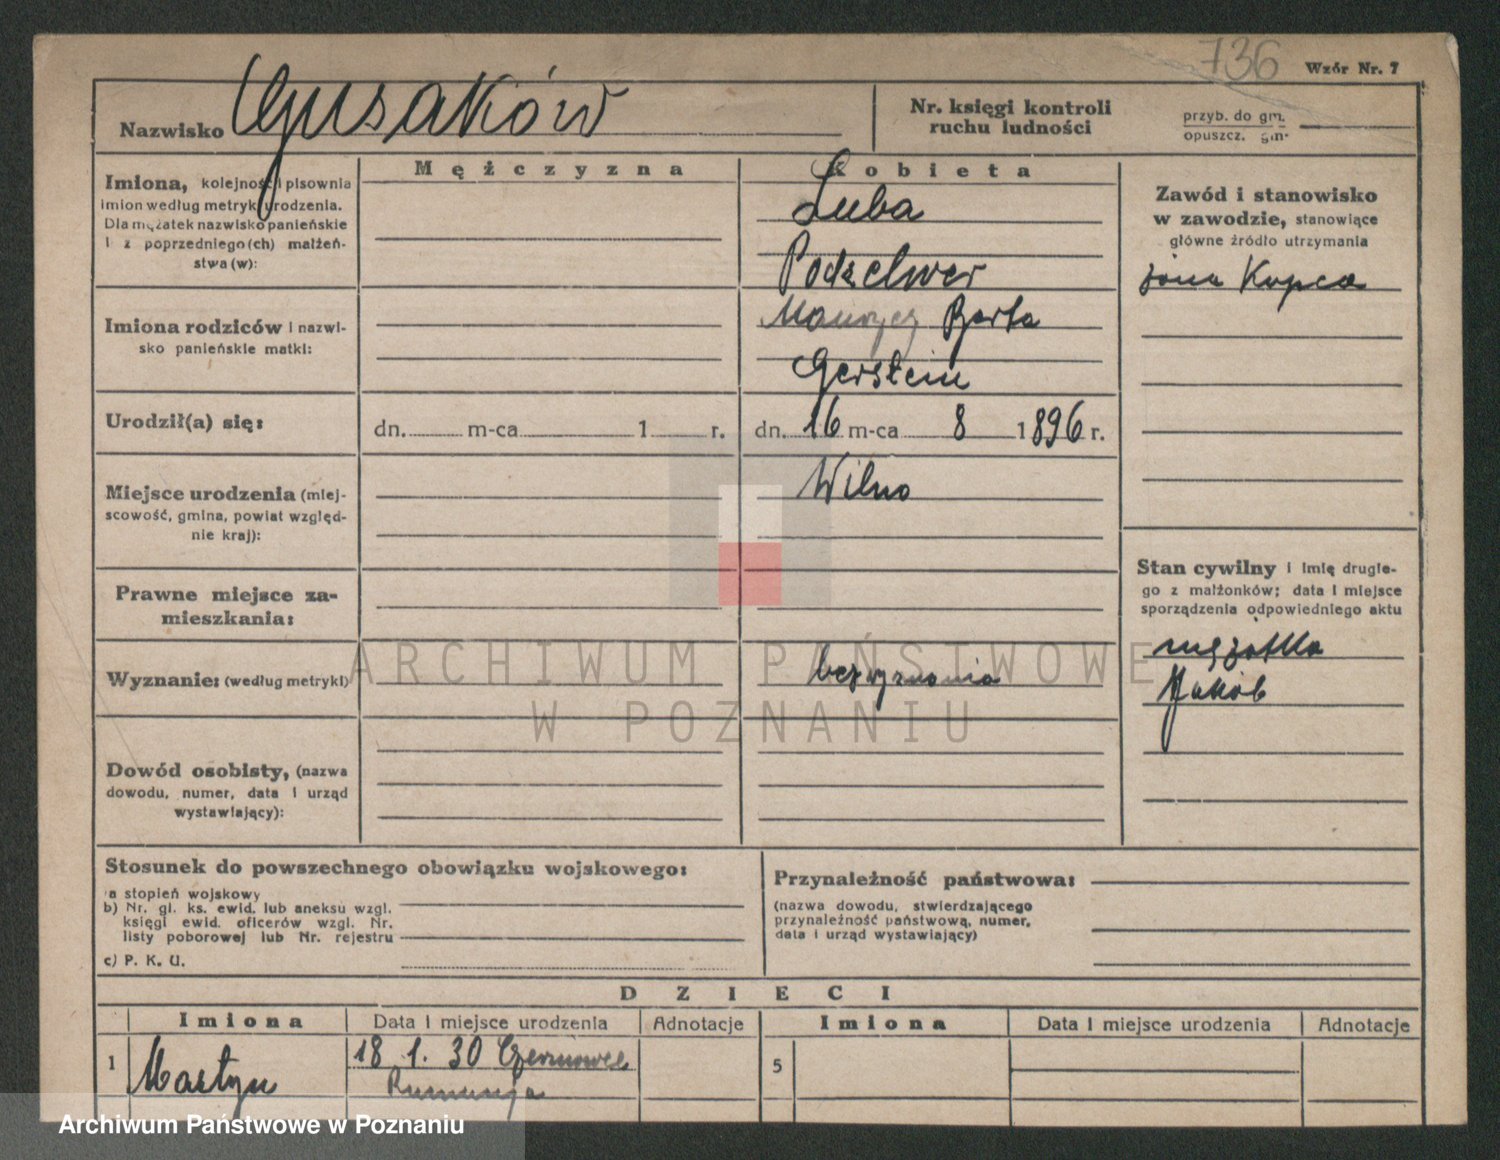 736
Wzór Nr. 7
Nazwisko Gusaków
Nr. księgi kontroli
ruchu ludności
przyb. do gm.
opuszcz. gm.
Mężczyzna
Kobieta
Imiona, kolejność i pisownia
imion według metryki urodzenia.
Dla mężatek nazwisko panieńskie
i z poprzedniego (ch) małżeń-
stwa (w):
Luba
Podzelwer
Zawód i stanowisko
w zawodzie, stanowiące
główne źródło utrzymania
żona Kupca
Imiona rodziców i nazwi-
sko panieńskie matki:
Maurycy Berta
Gerstein
Urodził(a) się:
dn. m-ca 1 r.
dn. 16 m-ca 8 1896 r.
Miejsce urodzenia (miej-
scowość, gmina, powiat wzgled-
nie kraj):
Wilno
Prawne miejsce za-
mieszkania:
Stan cywilny i imię drugie-
go z małżonków; data i miejsce
sporządzenia odpowiedniego aktu
mężatka
Jakób
Wyznanie: (według metryki)
bezwyznania
ARCHIWUM PAŃSTWOWE
W POZNANIU
Dowód osobisty, (nazwa
dowodu, numer, data i urząd
wystawiający):
Stosunek do powszechnego obowiązku wojskowego:
a stopień wojskowy
b) Nr. gl. ks. ewid. lub aneksu wzgl.
księgi ewid. oficerów wzgl. Nr.
listy poborowej lub Nr. rejestru
c) P. K. U.
Przynależność państwowa:
(nazwa dowodu, stwierdzającego
przynależność państwową, numer,
data i urząd wystawiający)
DZIECI
Imiona
Data i miejsce urodzenia
Adnotacje
Imiona
Data i miejsce urodzenia
Adnotacje
1 Martyn
18 . 1. 30 Czernowce
Rumunja
5
Archiwum Państwowe w Poznaniu